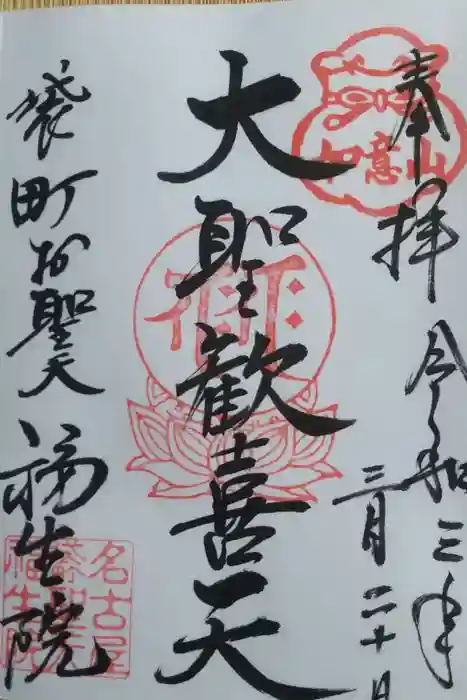 奉拝
如意山
令和三年
三月二十日
大聖歓喜天
袋町お聖天
福生院
名古屋
袋町聖天
福生院